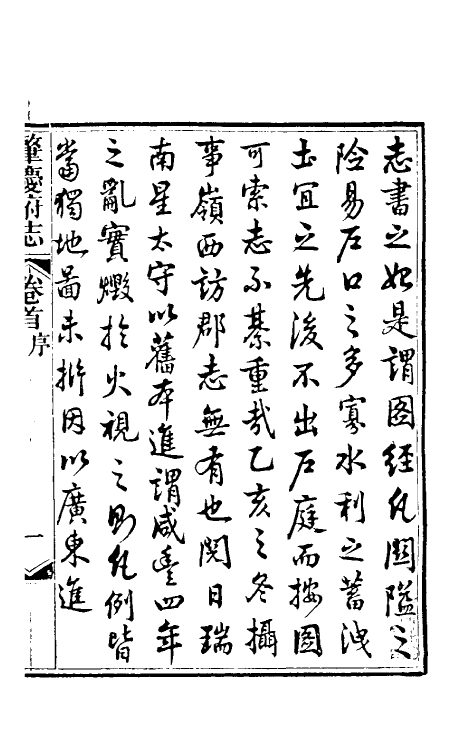 志書之始是謂圖經凡關隘之
險易户口之多寡水利之蓄洩
土宜之先後不出户庭而按圖
可索志不綦重哉乙亥之冬攝
事嶺西訪郡志無有也閱日瑞
南星太守以舊本進謂咸豐四年
之亂實燬於火視之則凡例皆
當獨地圖未析因以廣東進
肇慶府志
卷首
序
一